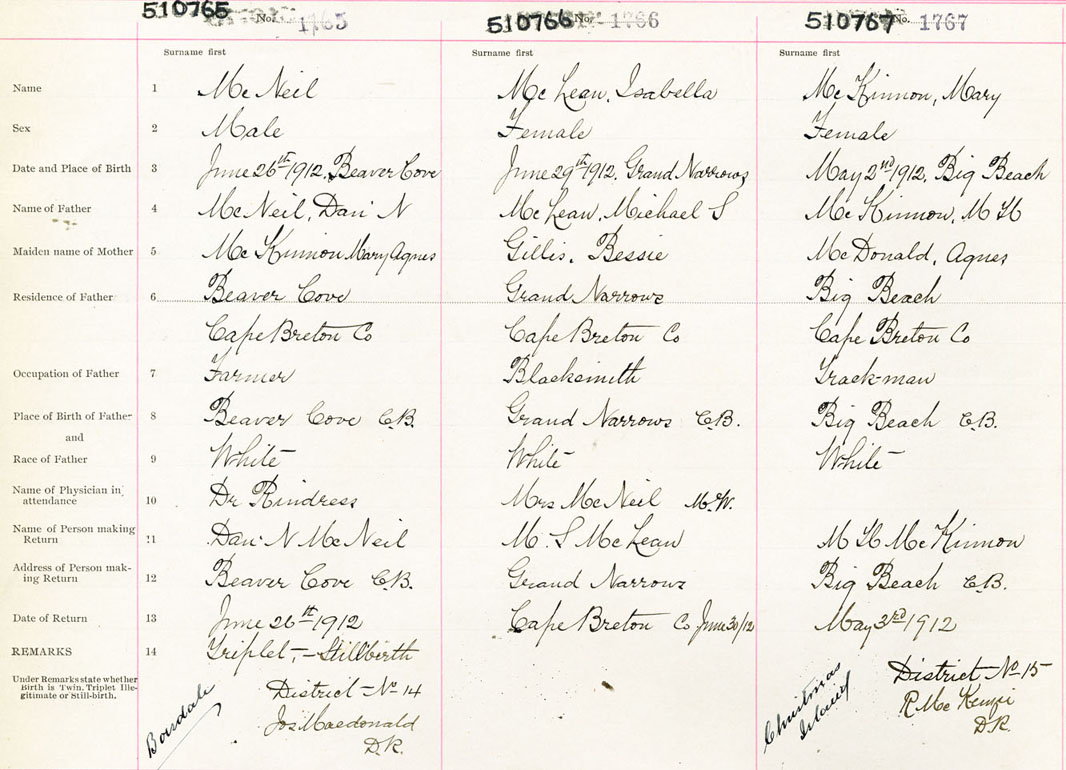 510765 No. 1765 510766 No. 1766 510767 No. 1767
Surname first Surname first Surname first
Name 1 McNeil McLean, Isabella McKinnon, Mary
Sex 2 Male Female Female
Date and Place of Birth 3 June 26th 1912, Beaver Cove June 29th 1912, Grand Narrows May 2nd 1912, Big Beach
Name of Father 4 McNeil, Dan' N McLean, Michael S McKinnon, M H
Maiden name of Mother 5 McKinnon Mary Agnes Gillis, Bessie McDonald, Agnes
Residence of Father 6 Beaver Cove Grand Narrows Big Beach
Cape Breton Co Cape Breton Co Cape Breton Co
Occupation of Father 7 Farmer Blacksmith Track-man
Place of Birth of Father 8 Beaver Cove C.B. Grand Narrows C.B. Big Beach C.B.
and
Race of Father 9 White White White
Name of Physician in
attendance 10 Dr Kindress Mrs McNeil M.W.
Name of Person making
Return 11 Dan' N McNeil M. S McLean M H McKinnon
Address of Person mak-
ing Return 12 Beaver Cove C.B. Grand Narrows Big Beach C.B.
Date of Return 13 June 26th 1912 Cape Breton Co June 30/12 May 3rd 1912
REMARKS 14 Triplet, - Stillbirth
Under Remarks state whether
Birth is Twin, Triplet Ille-
gitimate or Still-birth.
Boisdale
District No 14
Jos Macdonald
D.R.
Christmas
Island
District No 15
R McKenzie
D.R.